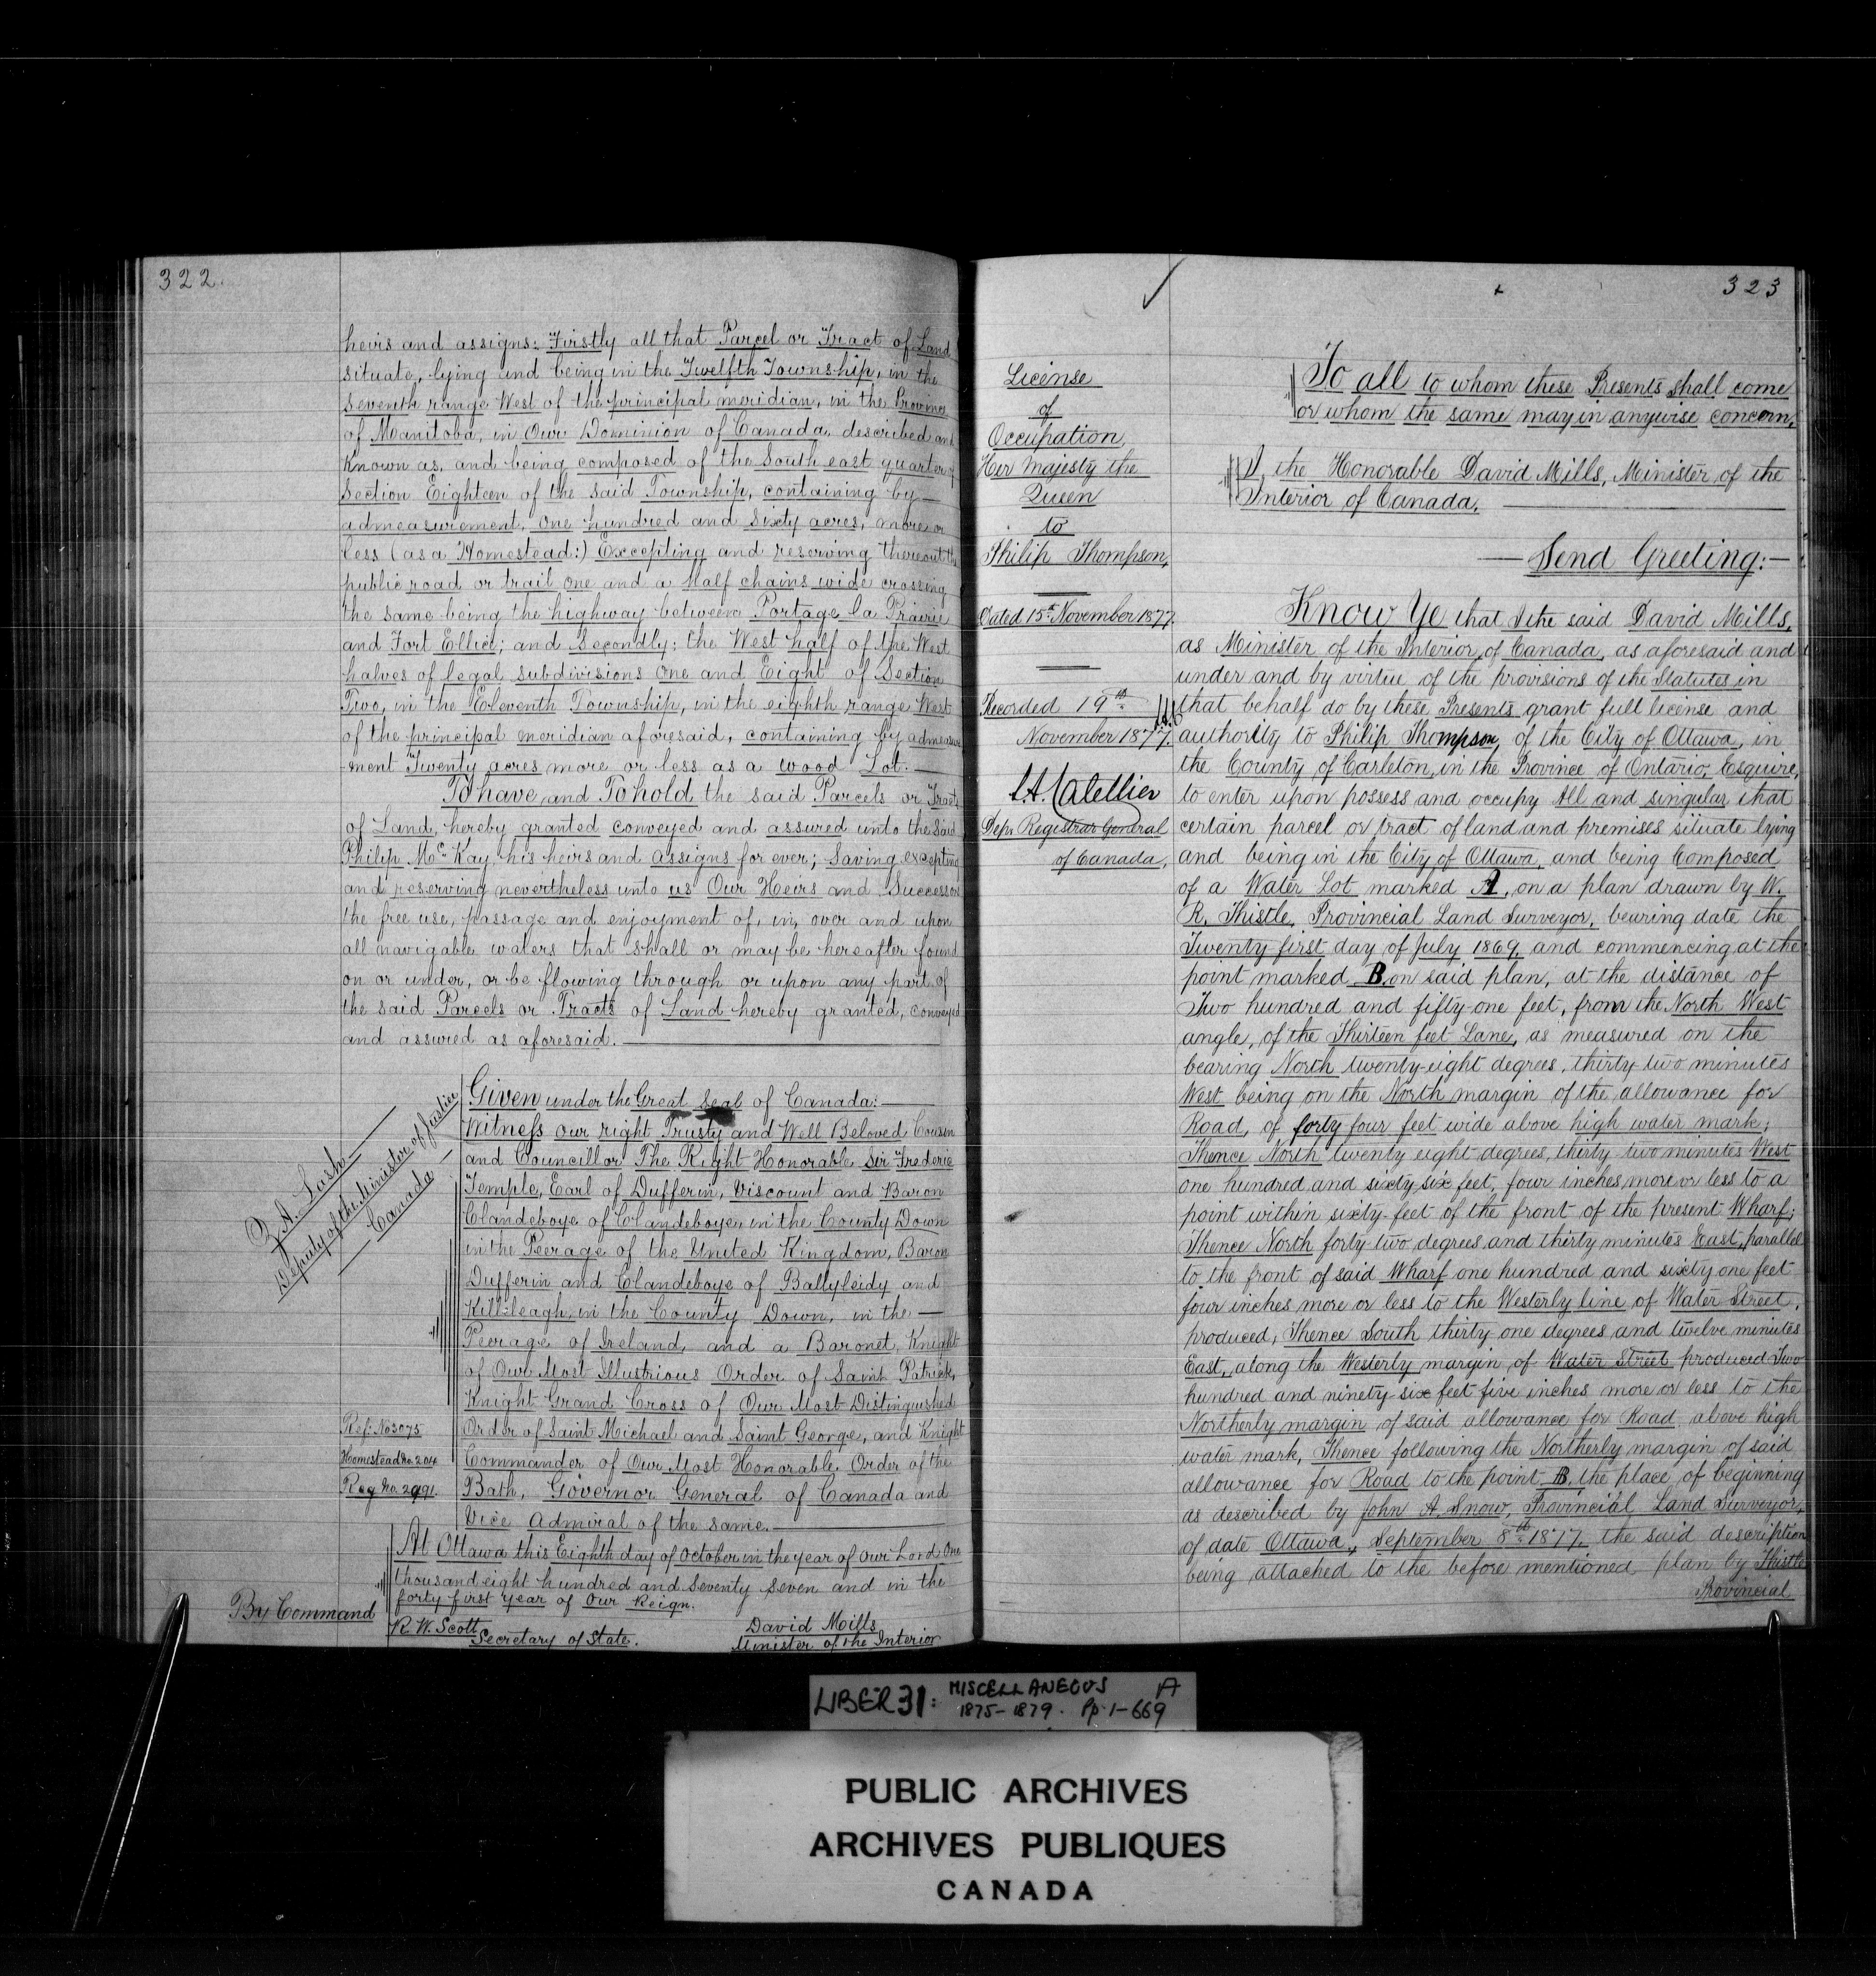 322.
heirs and assigns: Firstly all that Parcel or Tract of Land
situate, lying and being in the Twelfth Township, in the
seventh range West of the principal meridian, in the Province
of Manitoba, in Our Dominion of Canada, described and
known as, and being composed of the South east quarter of
Section Eighteen of the said Township, containing by
admeasurement, one hundred and sixty acres, more or
less (as a Homestead:) Excepting and reserving thereout the
public road or trail one and a half chains wide crossing
the same being the highway between Portage la Prairie
and Fort Ellice; and Secondly: the West half of the West
halves of legal subdivisions One and Eight of Section
Two, in the Eleventh Township, in the eighth range West
of the principal meridian aforesaid, containing by admeasure
-ment Twenty acres more or less as a wood Lot.
To have and To hold the said Parcels or Tracts
of Land, hereby granted conveyed and assured unto the said
Philip Mc Kay, his heirs and assigns for ever; Saving, excepting
and reserving nevertheless unto us Our Heirs and Successors
the free use, passage and enjoyment of, in, over and upon
all navigable waters that shall or may be hereafter found
on or under, or be flowing through or upon any part of
the said Parcels or Tracts of Land hereby granted, conveyed
and assured as aforesaid.
Z. A. Lash
Deputy of the Minister of Justice
Canada
Given under the Great Seal of Canada:
Witness our right Trusty and Well Beloved Cousin
and Councillor The Right Honorable Sir Frederic
Temple, Earl of Dufferin, Viscount and Baron
Clandeboye of Clandeboye, in the County Down
in the Peerage of the United Kingdom, Baron
Dufferin and Clandeboye of Ballyleidy and
Killileagh, in the County Down, in the
Peerage of Ireland, and a Baronet, Knight
of Our Most Illustrious Order of Saint Patrick,
Knight Grand Cross of Our Most Distinguished
Order of Saint Michael and Saint George, and Knight
Commander of Our Most Honorable Order of the
Bath, Governor General of Canada and
Vice Admiral of the same.
Ref: No 3075
Homestead No. 204
Reg No. 2991.
At Ottawa this Eighth day of October in the year of Our Lord One
thousand eight hundred and Seventy Seven and in the
forty first year of Our Reign.
By Command
R. W. Scott
Secretary of State.
David Mills
Minister of the Interior
323
License
of
Occupation,
Her Majesty the
Queen
to
Philip Thompson,
Dated 15th November 1877.
Recorded 19th
November 1877.
L.A. Catellier
Depy. Registrar General
of Canada,
To all to whom these Presents shall come
or whom the same may in anywise concern,
I, the Honorable David Mills, Minister of the
Interior of Canada,
Send Greeting:
Know Ye that I the said David Mills,
as Minister of the Interior, of Canada, as aforesaid and
under and by virtue of the provisions of the Statutes in
that behalf do by these Presents grant full license and
authority to Philip Thompson, of the City of Ottawa, in
the County of Carleton, in the Province of Ontario, Esquire,
to enter upon possess and occupy All and singular that
certain parcel or tract of land and premises situate lying
and being in the City of Ottawa, and being Composed
of a Water Lot marked A, on a plan drawn by W.
R. Thistle, Provincial Land Surveyor, bearing date the
Twenty first day of July 1869, and commencing at the
point marked B. on said plan, at the distance of
Two hundred and fifty-one feet, from the North West
angle, of the Thirteen feet Lane, as measured on the
bearing North twenty-eight degrees, thirty two minutes
West being on the North margin of the allowance for
Road, of forty four feet wide above high water mark;
Thence North twenty eight degrees, thirty-two minutes West
one hundred and sixty-six feet, four inches more or less to a
point within sixty feet of the front of the present Wharf;
Thence North forty two degrees and thirty minutes East, parallel
to the front of said Wharf one hundred and sixty one feet
four inches more or less to the Westerly line of Water Street,
produced, Thence South thirty one degrees and twelve minutes
East, along the Westerly margin of Water Street produced Two
hundred and ninety-six feet five inches more or less to the
Northerly margin of said allowance for Road above high
water mark, Thence following the Northerly margin of said
allowance for Road to the point B, the place of beginning
as described by John A. Snow, Provincial Land Surveyor,
of date Ottawa, September 8th 1877, the said description
being attached to the before mentioned plan by Thistle
Provincial
LIBER 31: MISCELLANEOUS A
1875-1879. Pp. 1-669
PUBLIC ARCHIVES
ARCHIVES PUBLIQUES
CANADA